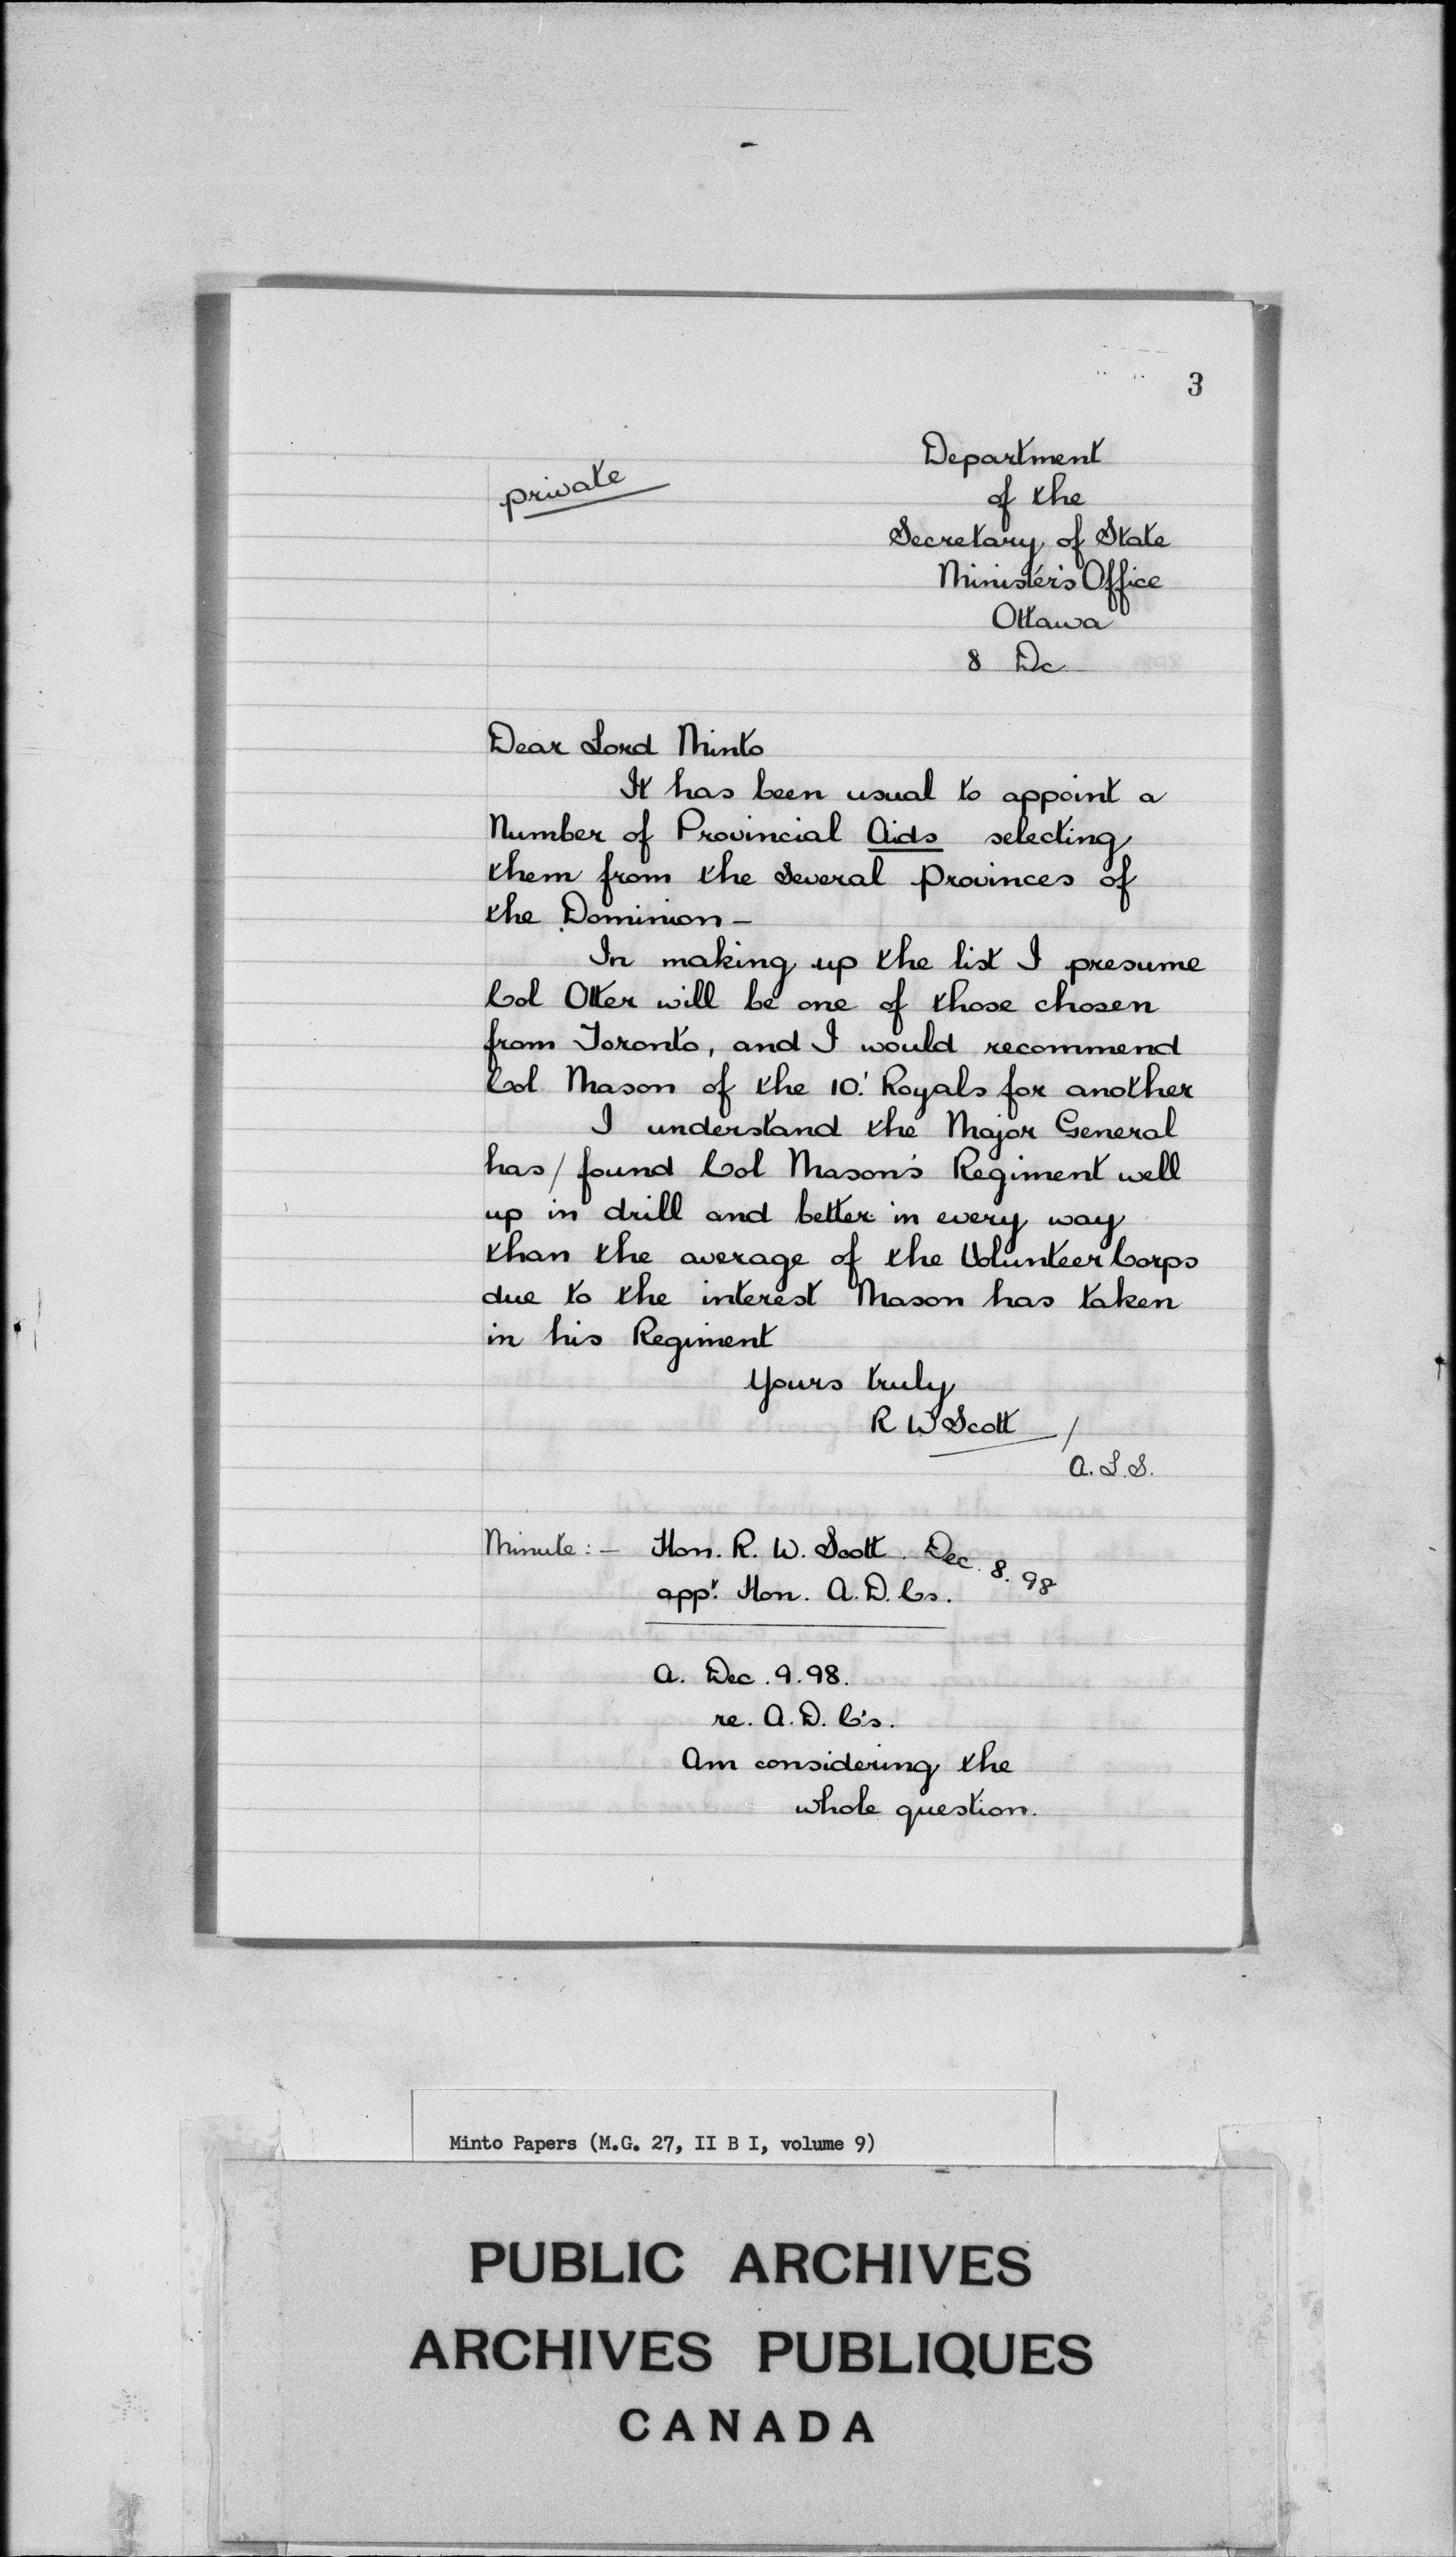 3
private
Department
of the
Secretary of State
Minister's Office
Ottawa
8 Dc
Dear Lord Minto
It has been usual to appoint a
Number of Provincial Aids selecting
them from the several Provinces of
the Dominion —
In making up the list I presume
Col Otter will be one of those chosen
from Toronto, and I would recommend
Col Mason of the 10.' Royals for another
I understand the Major General
has / found Col Mason's Regiment well
up in drill and better in every way
than the average of the Volunteer Corps
due to the interest Mason has taken
in his Regiment
Yours truly
R W Scott /
A. L. S.
Minute : — Hon. R. W. Scott. Dec. 8. 98
app't Hon. A. D. Cs.
A. Dec. 9. 98.
re. A. D. C's.
Am considering the
whole question.
Minto Papers (M.G. 27, II B I, volume 9)
PUBLIC ARCHIVES
ARCHIVES PUBLIQUES
CANADA